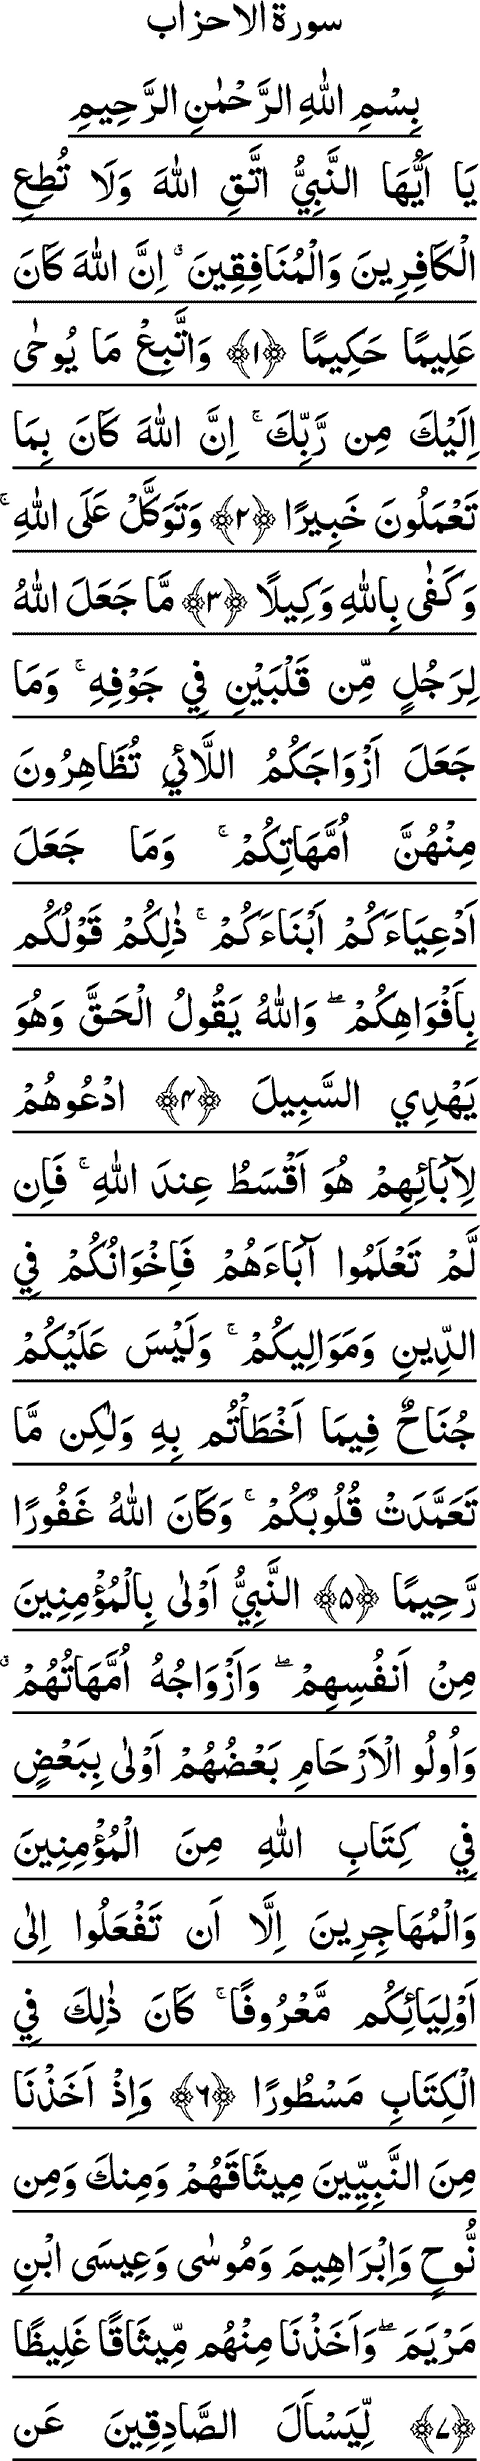 سورة الاحزاب
بِسْمِ اللهِ الرَّحْمٰنِ الرَّحِيمِ
يَا اَيُّهَا النَّبِيُّ اتَّقِ اللهَ وَلَا تُطِعِ
الْكَافِرِينَ وَالْمُنَافِقِينَ ۗ اِنَّ اللهَ كَانَ
عَلِيمًا حَكِيمًا ﴿۱﴾ وَاتَّبِعْ مَا يُوحٰى
اِلَيْكَ مِن رَّبِّكَ ۚ اِنَّ اللهَ كَانَ بِمَا
تَعْمَلُونَ خَبِيرًا ﴿۲﴾ وَتَوَكَّلْ عَلَى اللهِ ۚ
وَكَفٰى بِاللهِ وَكِيلًا ﴿۳﴾ مَّا جَعَلَ اللهُ
لِرَجُلٍ مِّن قَلْبَيْنِ فِي جَوْفِهِ ۚ وَمَا
جَعَلَ اَزْوَاجَكُمُ اللَّائِي تُظَاهِرُونَ
مِنْهُنَّ اُمَّهَاتِكُمْ ۚ وَمَا جَعَلَ
اَدْعِيَاءَكُمْ اَبْنَاءَكُمْ ۚ ذٰلِكُمْ قَوْلُكُم
بِاَفْوَاهِكُمْ ۖ وَاللهُ يَقُولُ الْحَقَّ وَهُوَ
يَهْدِي السَّبِيلَ ﴿۴﴾ ادْعُوهُمْ
لِآبَائِهِمْ هُوَ اَقْسَطُ عِندَ اللهِ ۚ فَاِن
لَّمْ تَعْلَمُوا آبَاءَهُمْ فَاِخْوَانُكُمْ فِي
الدِّينِ وَمَوَالِيكُمْ ۚ وَلَيْسَ عَلَيْكُمْ
جُنَاحٌ فِيمَا اَخْطَاْتُم بِهِ وَلٰكِن مَّا
تَعَمَّدَتْ قُلُوبُكُمْ ۚ وَكَانَ اللهُ غَفُورًا
رَّحِيمًا ﴿۵﴾ النَّبِيُّ اَوْلٰى بِالْمُؤْمِنِينَ
مِنْ اَنفُسِهِمْ ۖ وَاَزْوَاجُهُ اُمَّهَاتُهُمْ ۗ
وَاُولُو الْاَرْحَامِ بَعْضُهُمْ اَوْلٰى بِبَعْضٍ
فِي كِتَابِ اللهِ مِنَ الْمُؤْمِنِينَ
وَالْمُهَاجِرِينَ اِلَّا اَن تَفْعَلُوا اِلٰى
اَوْلِيَائِكُم مَّعْرُوفًا ۚ كَانَ ذٰلِكَ فِي
الْكِتَابِ مَسْطُورًا ﴿۶﴾ وَاِذْ اَخَذْنَا
مِنَ النَّبِيِّينَ مِيثَاقَهُمْ وَمِنكَ وَمِن
نُّوحٍ وَاِبْرَاهِيمَ وَمُوسٰى وَعِيسَى ابْنِ
مَرْيَمَ ۖ وَاَخَذْنَا مِنْهُم مِّيثَاقًا غَلِيظًا
﴿۷﴾ لِّيَسْاَلَ الصَّادِقِينَ عَن